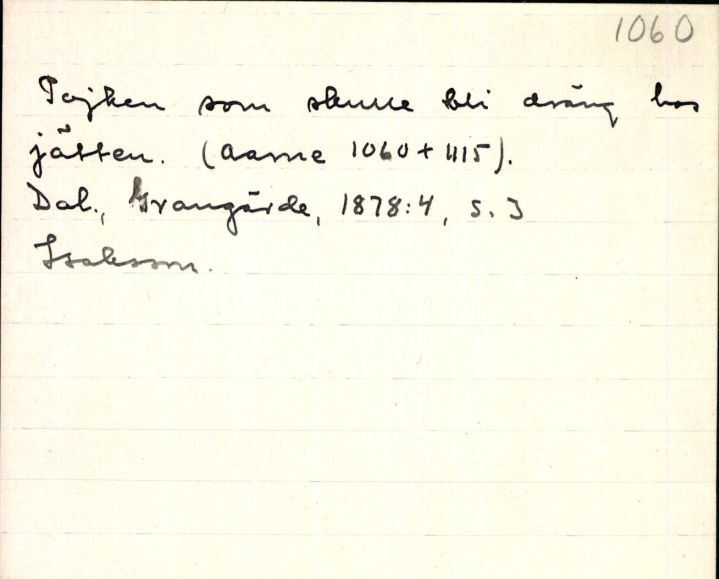 1060
Pojken som skulle bli dräng hos
jätten. (Aarne 1060 + 1115).
Dal., Grangärde, 1878:4, s. 3
Isaksson.